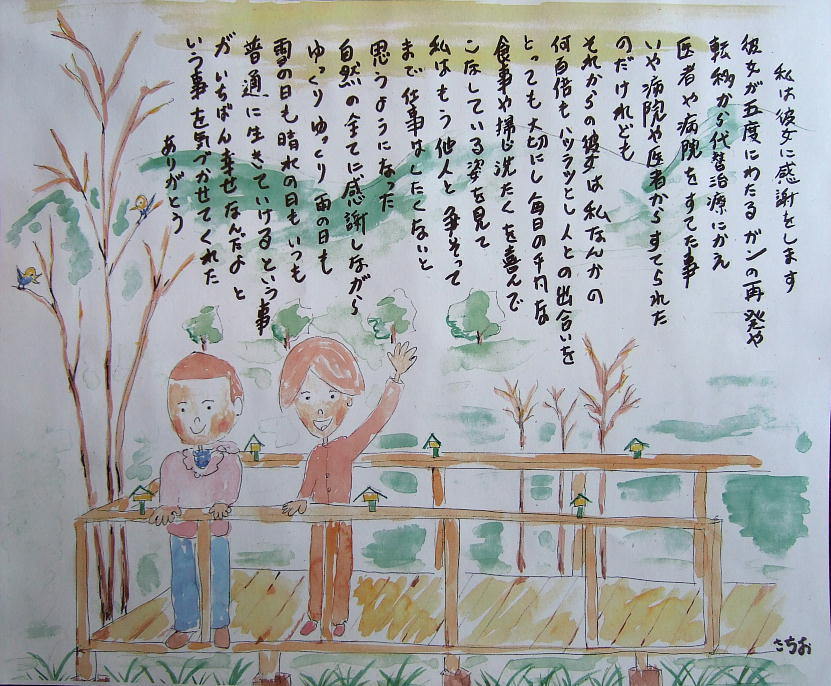 私は彼女に感謝をします
彼女が五度にわたるガンの再発や
転移から代替治療にかえ
医者や病院をすてた事
いや病院や医者からすてられた
のだけれども
それからの彼女は私なんかの
何百倍もハツラツとし人との出合いを
とっても大切にし毎日の平凡な
食事や掃じ洗たくを喜んで
こなしている姿を見て
私はもう他人と争そって
まで仕事はしたくないと
思うようになった
自然の全てに感謝しながら
ゆっくりゆっくり雨の日も
雪の日も晴れの日もいつも
普通に生きていけるという事
がいちばん幸せなんだよと
いう事を気づかせてくれた
ありがとう
さちお